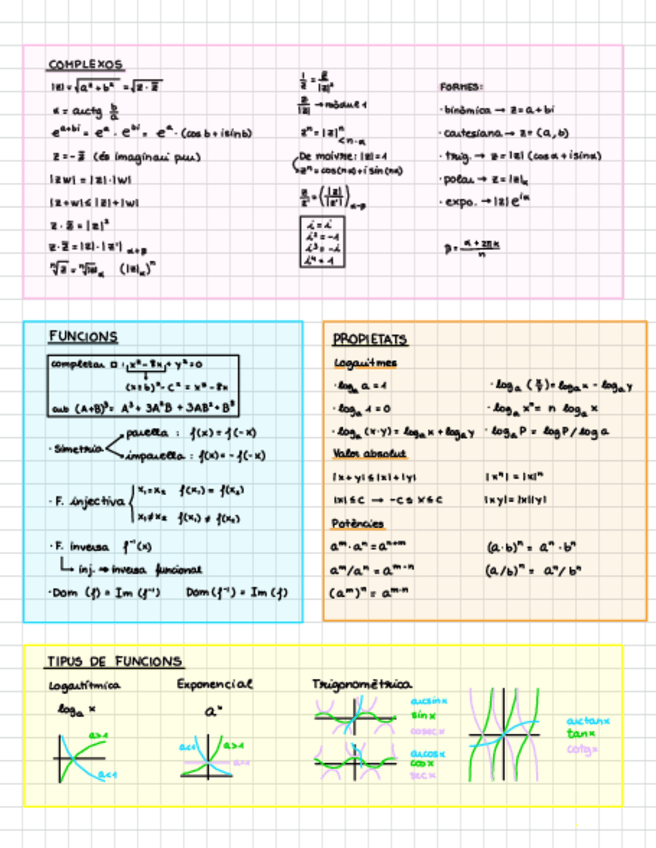 COMPLEXOS
|z| = √(a² + b²) = √(z · z̄)
α = arctg b/a
e^(a+bi) = e^a · e^(bi) = e^a · (cos b + i sin b)
z = -z̄ (és imaginari pur)
|zw| = |z| · |w|
|z + w| ≤ |z| + |w|
z · z̄ = |z|²
ⁿ√z = ⁿ√|z| α (|z|α)ⁿ
1/z = z̄/|z|²
z/|z| → mòdul 1
zⁿ = |z|ⁿ n·α
De moivre: |z| = 1
zⁿ = cos(nα) + i sin(nα)
z/z' = (|z|/|z'|) α-β
i = i
i² = -1
i³ = -i
i⁴ = 1
FORMES:
· binòmica → z = a + bi
· cartesiana → z = (a, b)
· trig. → z = |z| (cos α + i sin α)
· polar → z = |z|α
· expo. → |z| e^(iα)
β = (α + 2πk)/n
FUNCIONS
completar □ : x² - 8x + y² = 0
cub (A+B)³ = A³ + 3A²B + 3AB² + B³
· Simetria
parella : f(x) = f(-x)
imparella : f(x) = - f(-x)
· F. injectiva
x₁ = x₂ f(x₁) = f(x₂)
x₁ ≠ x₂ f(x₁) ≠ f(x₂)
· F. inversa f⁻¹(x)
inj. → inversa funcional
· Dom (f) = Im (f⁻¹) Dom (f⁻¹) = Im (f)
PROPIETATS
Logaritmes
· logₐ a = 1
· logₐ 1 = 0
· logₐ (x·y) = logₐ x + logₐ y
· logₐ (x/y) = logₐ x - logₐ y
· logₐ xⁿ = n logₐ x
· logₐ P = log P / log a
Valor absolut
|x + y| ≤ |x| + |y|
|x| ≤ c → -c ≤ x ≤ c
|xⁿ| = |x|ⁿ
|xy| = |x||y|
Potències
aᵐ · aⁿ = aⁿ⁺ᵐ
aᵐ/aⁿ = aᵐ⁻ⁿ
(aᵐ)ⁿ = aᵐ·ⁿ
(a·b)ⁿ = aⁿ · bⁿ
(a/b)ⁿ = aⁿ/bⁿ
TIPUS DE FUNCIONS
Logarítmica
logₐ x
a>1
a<1
Exponencial
aˣ
a<1
a>1
Trigonomètrica
arcsin x
sin x
cosec x
arcos x
cos x
sec x
arctan x
tan x
cotg x